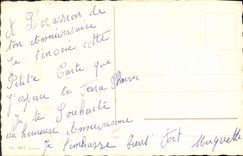 A L'occasion de
ton Anniversaire
Je t'envoie cette
Petite Carte que
J'espère te Fera Plaisir
Je te Souhaite
un heureuse Anniversaire
Je t'embrasse bien Fort Muguette